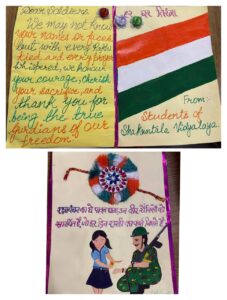 Dear Soldiers
We may not know
your names or faces
but with every Rakhi
tied and every prayer
whispered, we honour
your courage, cherish
your sacrifice, and
thank you for
being the true
guardians of our
freedom.
हर घर तिरंगा
From:
Students of
Shakuntala Vidyalaya
रक्षाबंधन का ये पावन
वीर सैनिकों को